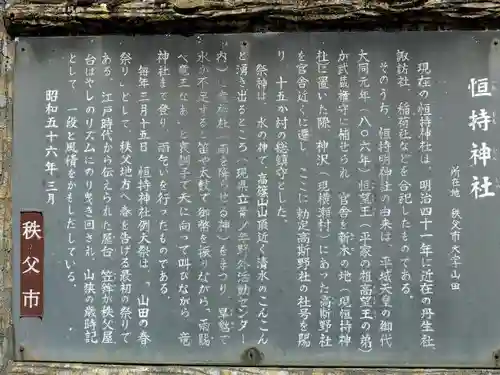 恒持神社
所在地 秩父市大字山田
現在の恒持神社は、明治四十一年に近在の丹生社、
諏訪社、稲荷社などを合祀したものである。
そのうち、恒持明神社の由来は、平城天皇の御代
大同元年(八〇六年)恒望王(平家の祖高望王の弟)
が武蔵権守に補せられ、官舎を新木の地(現恒持神
社)に置いた際、神沢(現横瀬村)にあった高斯野社
を官舎近くに遷し、ここに勅定高斯野社の社号を賜
り、十五か村の総鎮守とした。
祭神は、水の神で高篠山山頂近く清水のこんこん
と湧き出るところ(現県立青少年野外活動センター
内)に奥宮社(雨を降らせる神)をまつり、旱魃で
水が不足すると笛や太鼓で御幣を振りながら、雨賜
べ竜王なあ、と哀調子で天に向って叫びながら、竜
神社まで登り、雨乞いを行ったものである。
毎年三月十五日、恒持神社例大祭は、「山田の春
祭り」として、秩父地方へ春を告げる最初の祭りで
ある。江戸時代から伝えられた屋台、笠鉾が秩父屋
台ばやしのリズムにのり曳き回され、山狭の歳時記
として、一段と風情をかもしだしている。
昭和五十六年三月
秩父市